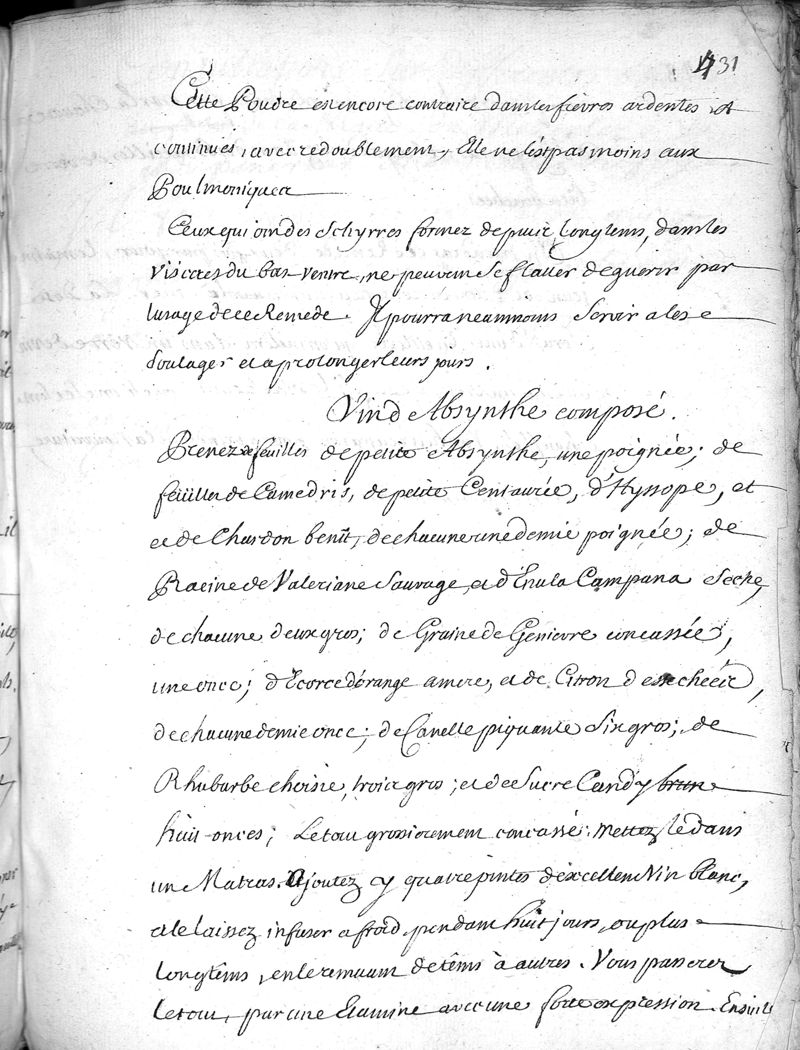 431
Cette Poudre est encore contraire dans les fievres ardentes et
continues, avec redoublement, Elle ne l'est pas moins aux
Poulmoniques
Ceux qui ont des Schyrres formez depuis longtems, dans les
visceres du bas-ventre, ne peuvent se flatter de guerir par
lusage de ce Remede. Il pourra neanmoins Servir a les
soulager et a prolonger leurs jours.
Vin d'Absynthe composé.
Prenez de feuilles de petite Absynthe, une poignée; de
feüilles de Camedris, de petite Centaurée, d'Hysope, et
et de Chardon benit, de chacune une demie poignée; de
Racine de Valeriane Sauvage, et d'Enula Campana seche,
de chacune deux gros; de Graine de Genievre concassée,
une once; d'Ecorce d'orange amere, et de Citron dessechée,
de chacune demie once; de Canelle piquante Six gros; de
Rhubarbe choisie, trois gros; et de Sucre Candy brun
huit onces; Le tout grossierement concassé. Mettez le dans
un Matras. Ajoutez y quatre pintes d'excellent Vin blanc,
et le laissez infuser a froid, pendant huit jours, ou plus
longtêms, en le remuant de têms à autres. Vous passerez
le tout, par une Etamine avec une forte expression. Ensuite